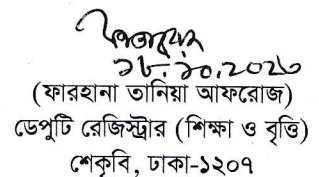 ১৮.১০.২০২৩
(ফারহানা তানিয়া আফরোজ)
ডেপুটি রেজিস্ট্রার (শিক্ষা ও বৃত্তি)
শেকৃবি, ঢাকা-১২০৭